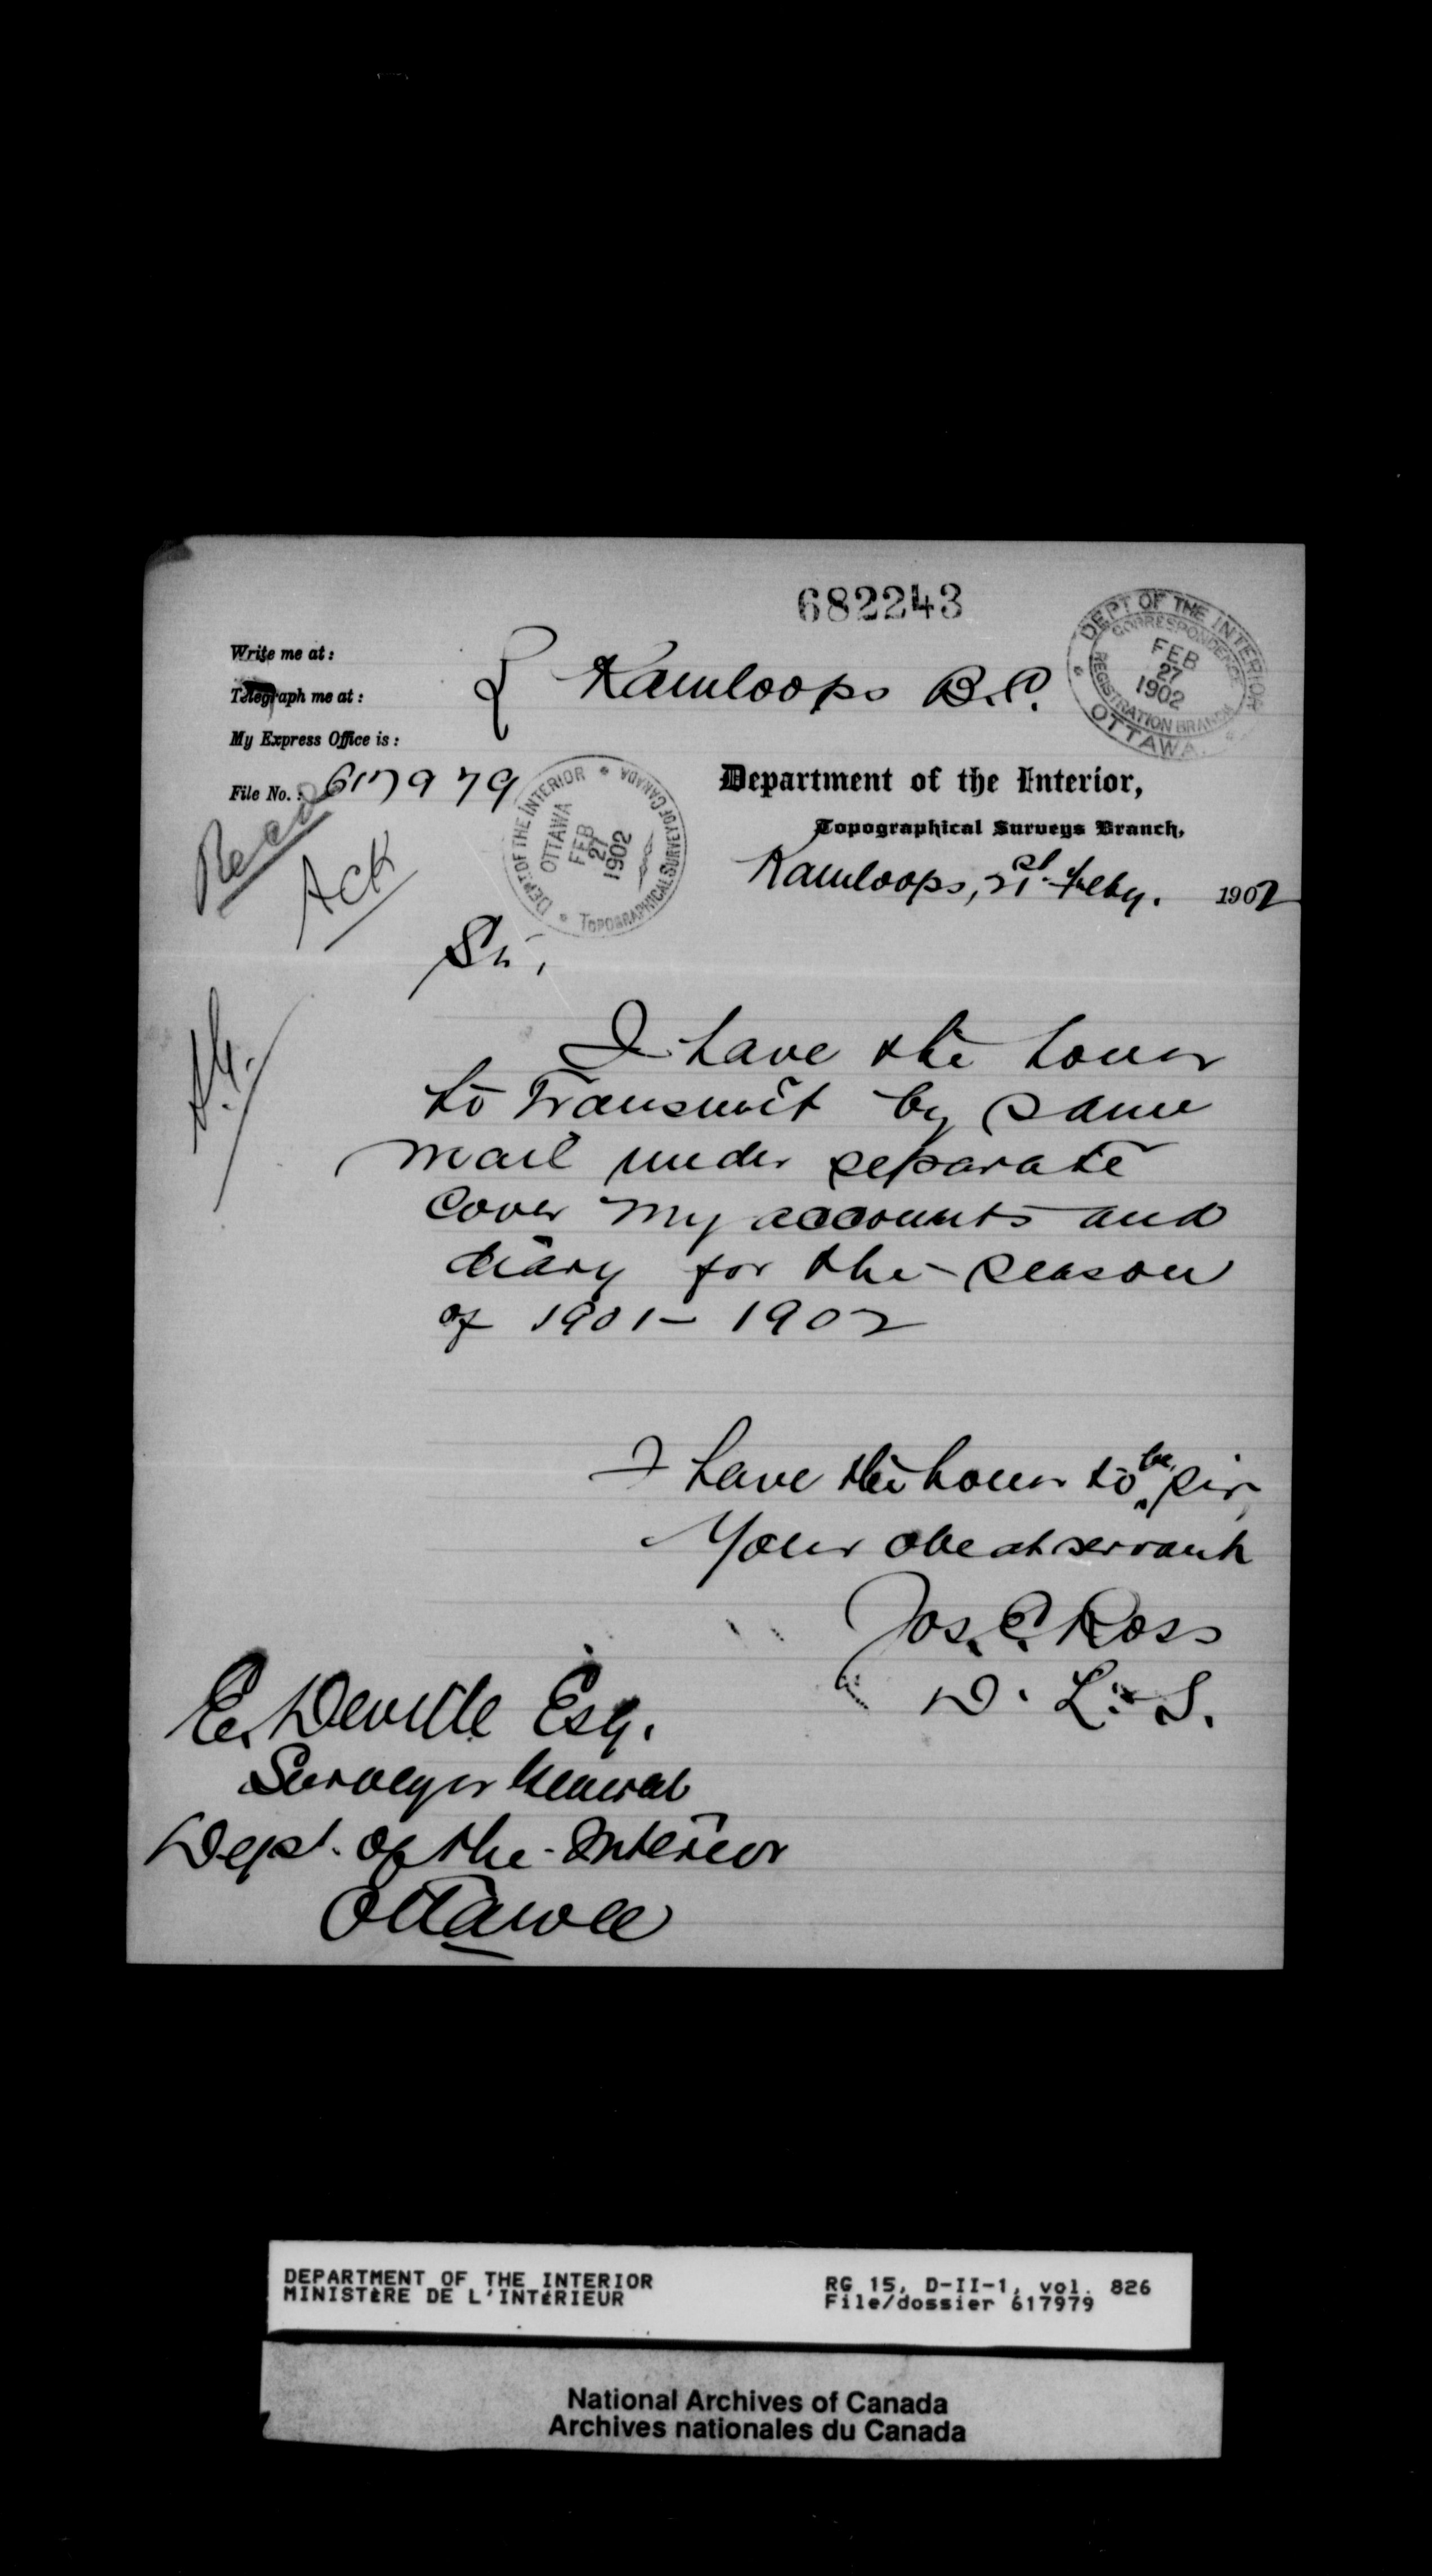 682243
DEPT OF THE INTERIOR
CORRESPONDENCE
FEB
27
1902
REGISTRATION BRANCH
OTTAWA.
Write me at:
Telegraph me at:
My Express Office is:
{ Kamloops B.C.
File No.: 617979
Recd
Ack
DEPT OF THE INTERIOR
OTTAWA
FEB
27
1902
TOPOGRAPHICAL SURVEY OF CANADA
Department of the Interior,
Topographical Surveys Branch,
Kamloops, 21st Feby. 1902
Sir,
I have the honor
to transmit by same
mail under separate
cover my accounts and
diary for the season
of 1901-1902
I have the honor to be, sir,
Your obedt servant
Jos. E. Ross
D. L. S.
E. Deville Esq.
Surveyor General
Dept. of the Interior
Ottawa
DEPARTMENT OF THE INTERIOR
MINISTÈRE DE L'INTÉRIEUR
RG 15, D-II-1, vol. 826
File/dossier 617979
National Archives of Canada
Archives nationales du Canada